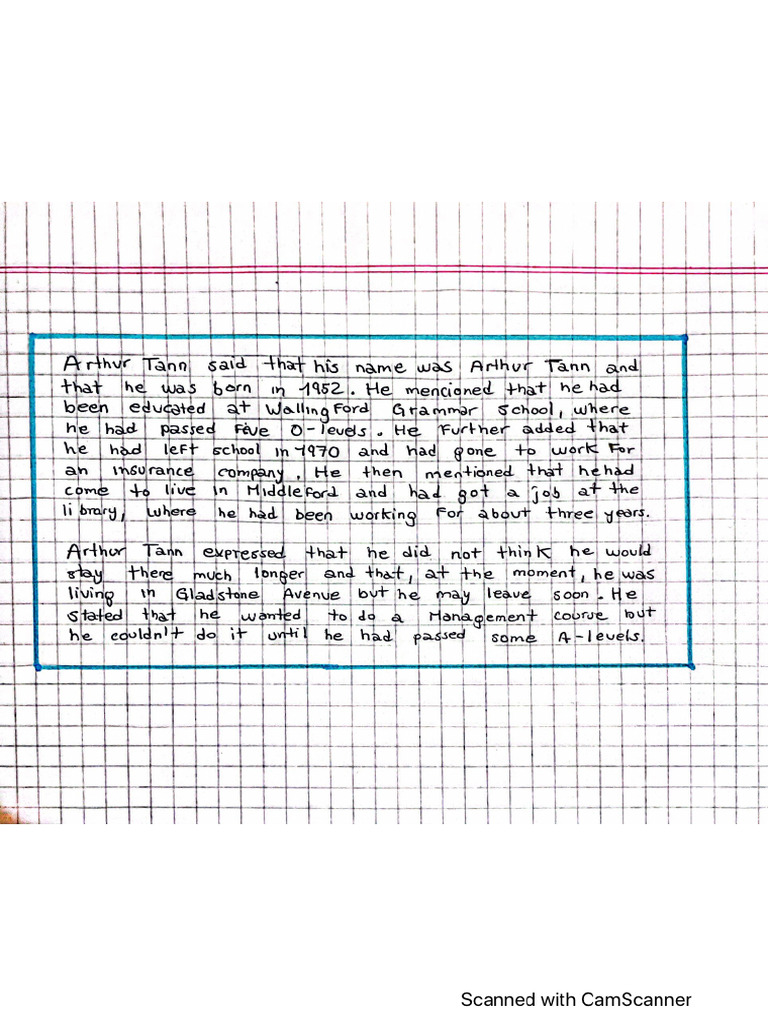 Arthur Tann said that his name was Arthur Tann and
that he was born in 1952. He mencioned that he had
been educated at Wallingford Grammar School, where
he had passed five O-levels. He further added that
he had left school in 1970 and had gone to work for
an insurance company. He then mentioned that he had
come to live in Middleford and had got a job at the
library, where he had been working for about three years.
Arthur Tann expressed that he did not think he would
stay there much longer and that, at the moment, he was
living in Gladstone Avenue but he may leave soon. He
stated that he wanted to do a Management course but
he couldn't do it until he had passed some A-levels.
Scanned with CamScanner